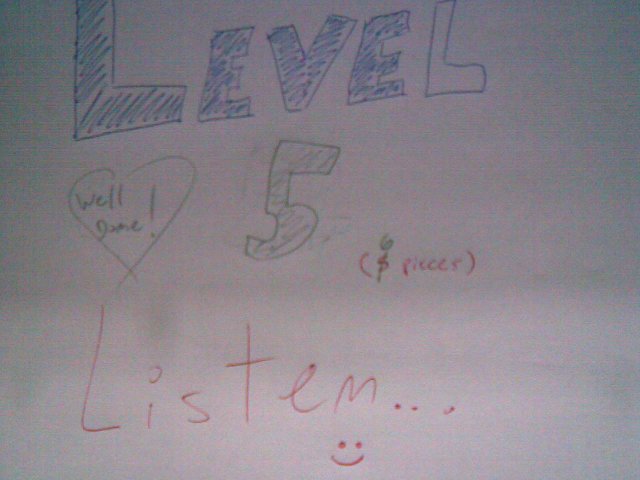 LEVEL
well
done!
5
(6 pieces)
Listen...